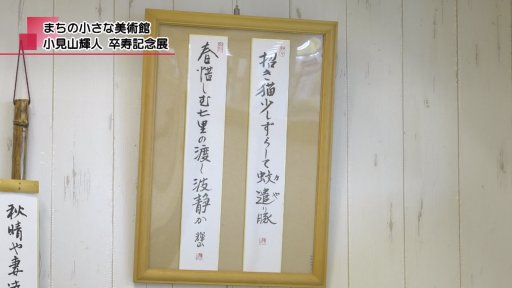 まちの小さな美術館
小見山輝人 卒寿記念展
招き猫少しずらして蚊遣り豚
カヤ
春惜しむ七里の渡し波静か 輝山
秋晴や妻